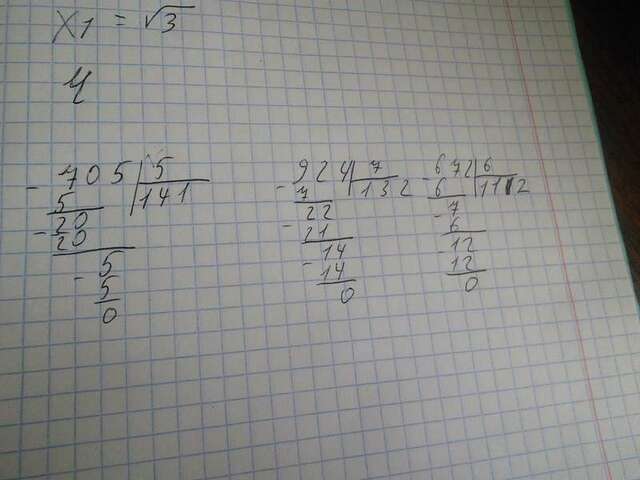 X1 = √3
4
- 705 | 5
5 | 141
- 20
20
- 5
5
0
- 924 | 7
7 | 132
- 22
21
- 14
14
0
- 672 | 6
6 | 112
- 7
6
- 12
12
0